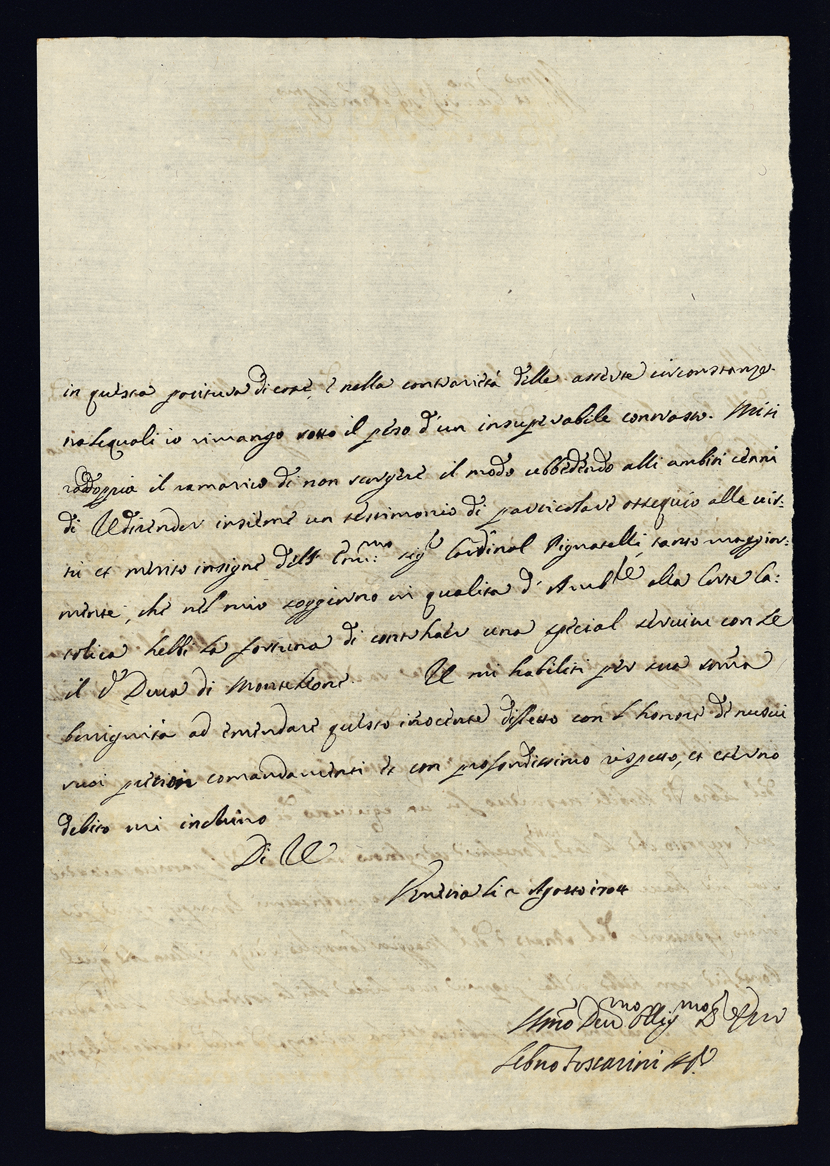 in questa positura di cose, e nella contrarietà delle asserite circonstanze
trà le quali io rimango sotto il peso d'un insuperabile contrasto. Mi si
raddoppia il ramarico di non scorgere il modo ubbedendo alli ambiti cenni
di VE di render insieme un testimonio di particolare ossequio alle vir-
tù et merito insigne dell' Em:mo sigr Cardinal Pignatelli, tanto maggior:
mente, che nel mio soggiorno in qualità d' Ambre alla Corte Ca:
tolica hebbi la fortuna di contrhaer una special servitù con
il Duca di Monteleone VE mi habiliti per sua somma
benignità ad emendare questo inocente diffetto con l' honore de nuovi
suoi pretiosi comandamenti et con profondissimo rispetto, et eterno
debito mi inchino
Di VE
Venetia li Agosto 1704
Devmo Obligmo
Sebno Foscarini